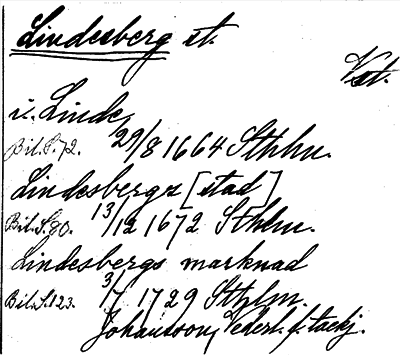 Lindesberg st.
Vst.
i. Linde,
Bil. S. 72. 29/8 1664 Sthlm.
Lindesbergz [stad]
Bil. S. 80. 13/12 1672 Sthlm.
Lindesbergs marknad
Bil. S. 123. 3/17 1729 Sthlm.
Johansson,